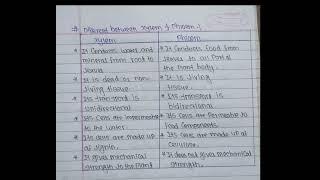 Different between xylem & Phloem :-
xylem Phloem
* It Conducts water and * It Conducts food from
mineral from root to leaves to all Part of
the Plant body.
* It is dead or non- * It is living
living tissue. tissue.
* Its transport is * Its transport is
unidirectional bidirectional
* Its cells are impermeable * Its cells are Permeable to
to the water. food Components.
* Its cells are made up * Its cells are made up of
of lignin. cellulose.
* It gives mechanical * It does not give mechanical
strength to the Plant strength.